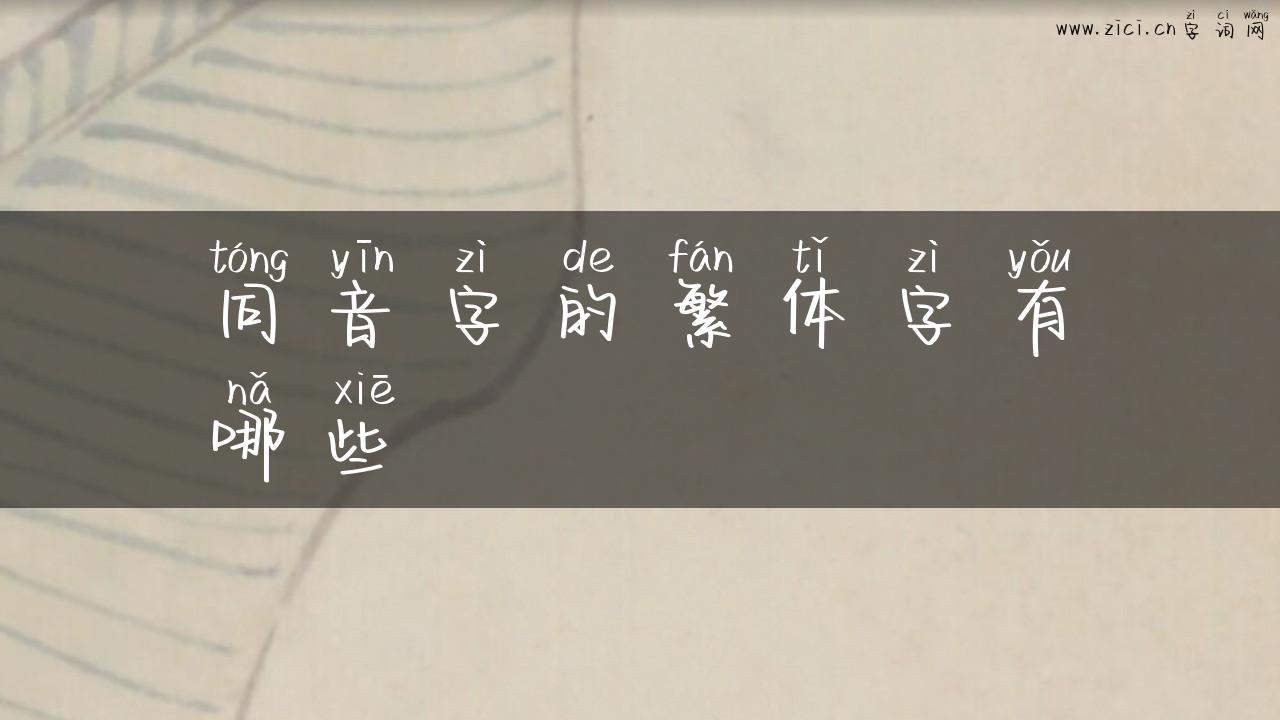 zì cí wǎng
www.zici.cn字词网
tóng yīn zì de fán tǐ zì yǒu
同音字的繁体字有
nǎ xiē
哪些